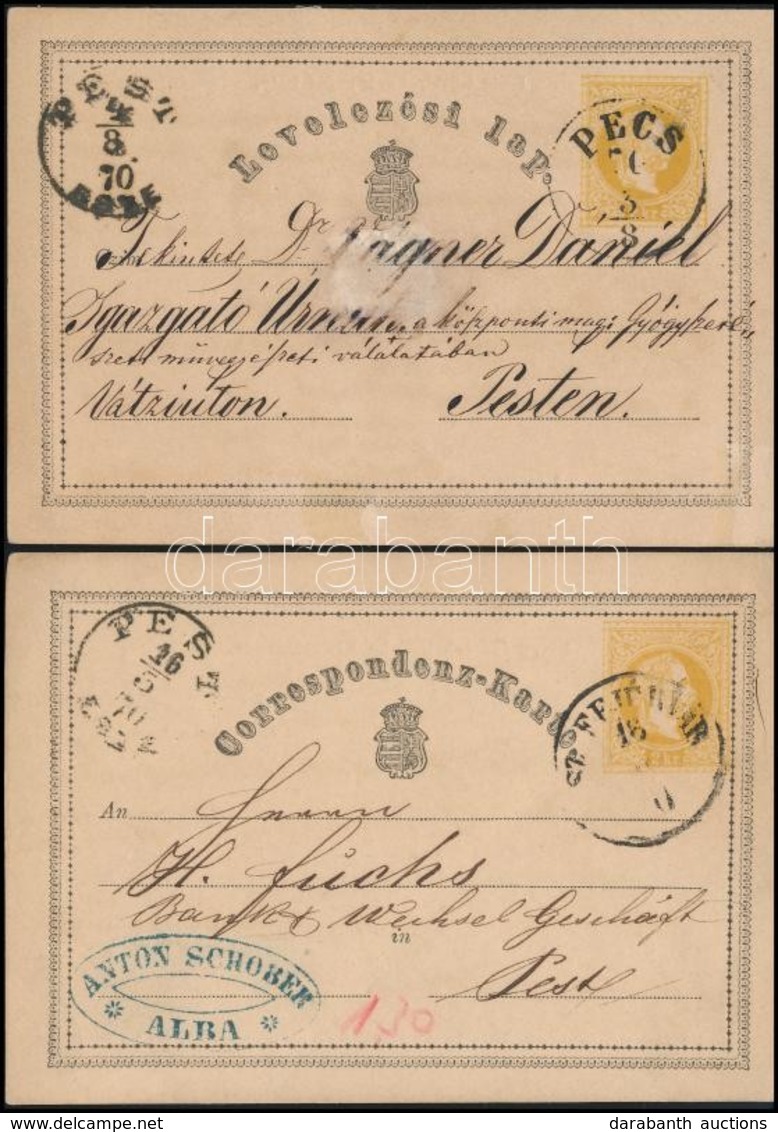 PEST
8
70
Levelezési lap.
PECS
3
8
Tekintetes Dr. Wagner Dániel
Igazgató Úrnak, a központi magy Gyógyszeré-
szeti művegyészeti válalatában
Vátziuton. Pesten.
darabanth
PEST
16
5
70
Correspondenz-Karte
ST. FEJERVAR
18
An Herrn
H. Fuchs
Bank & Wechsel Geschäft
Pest
ANTON SCHOBER
ALBA
1,30
darabanth auctions